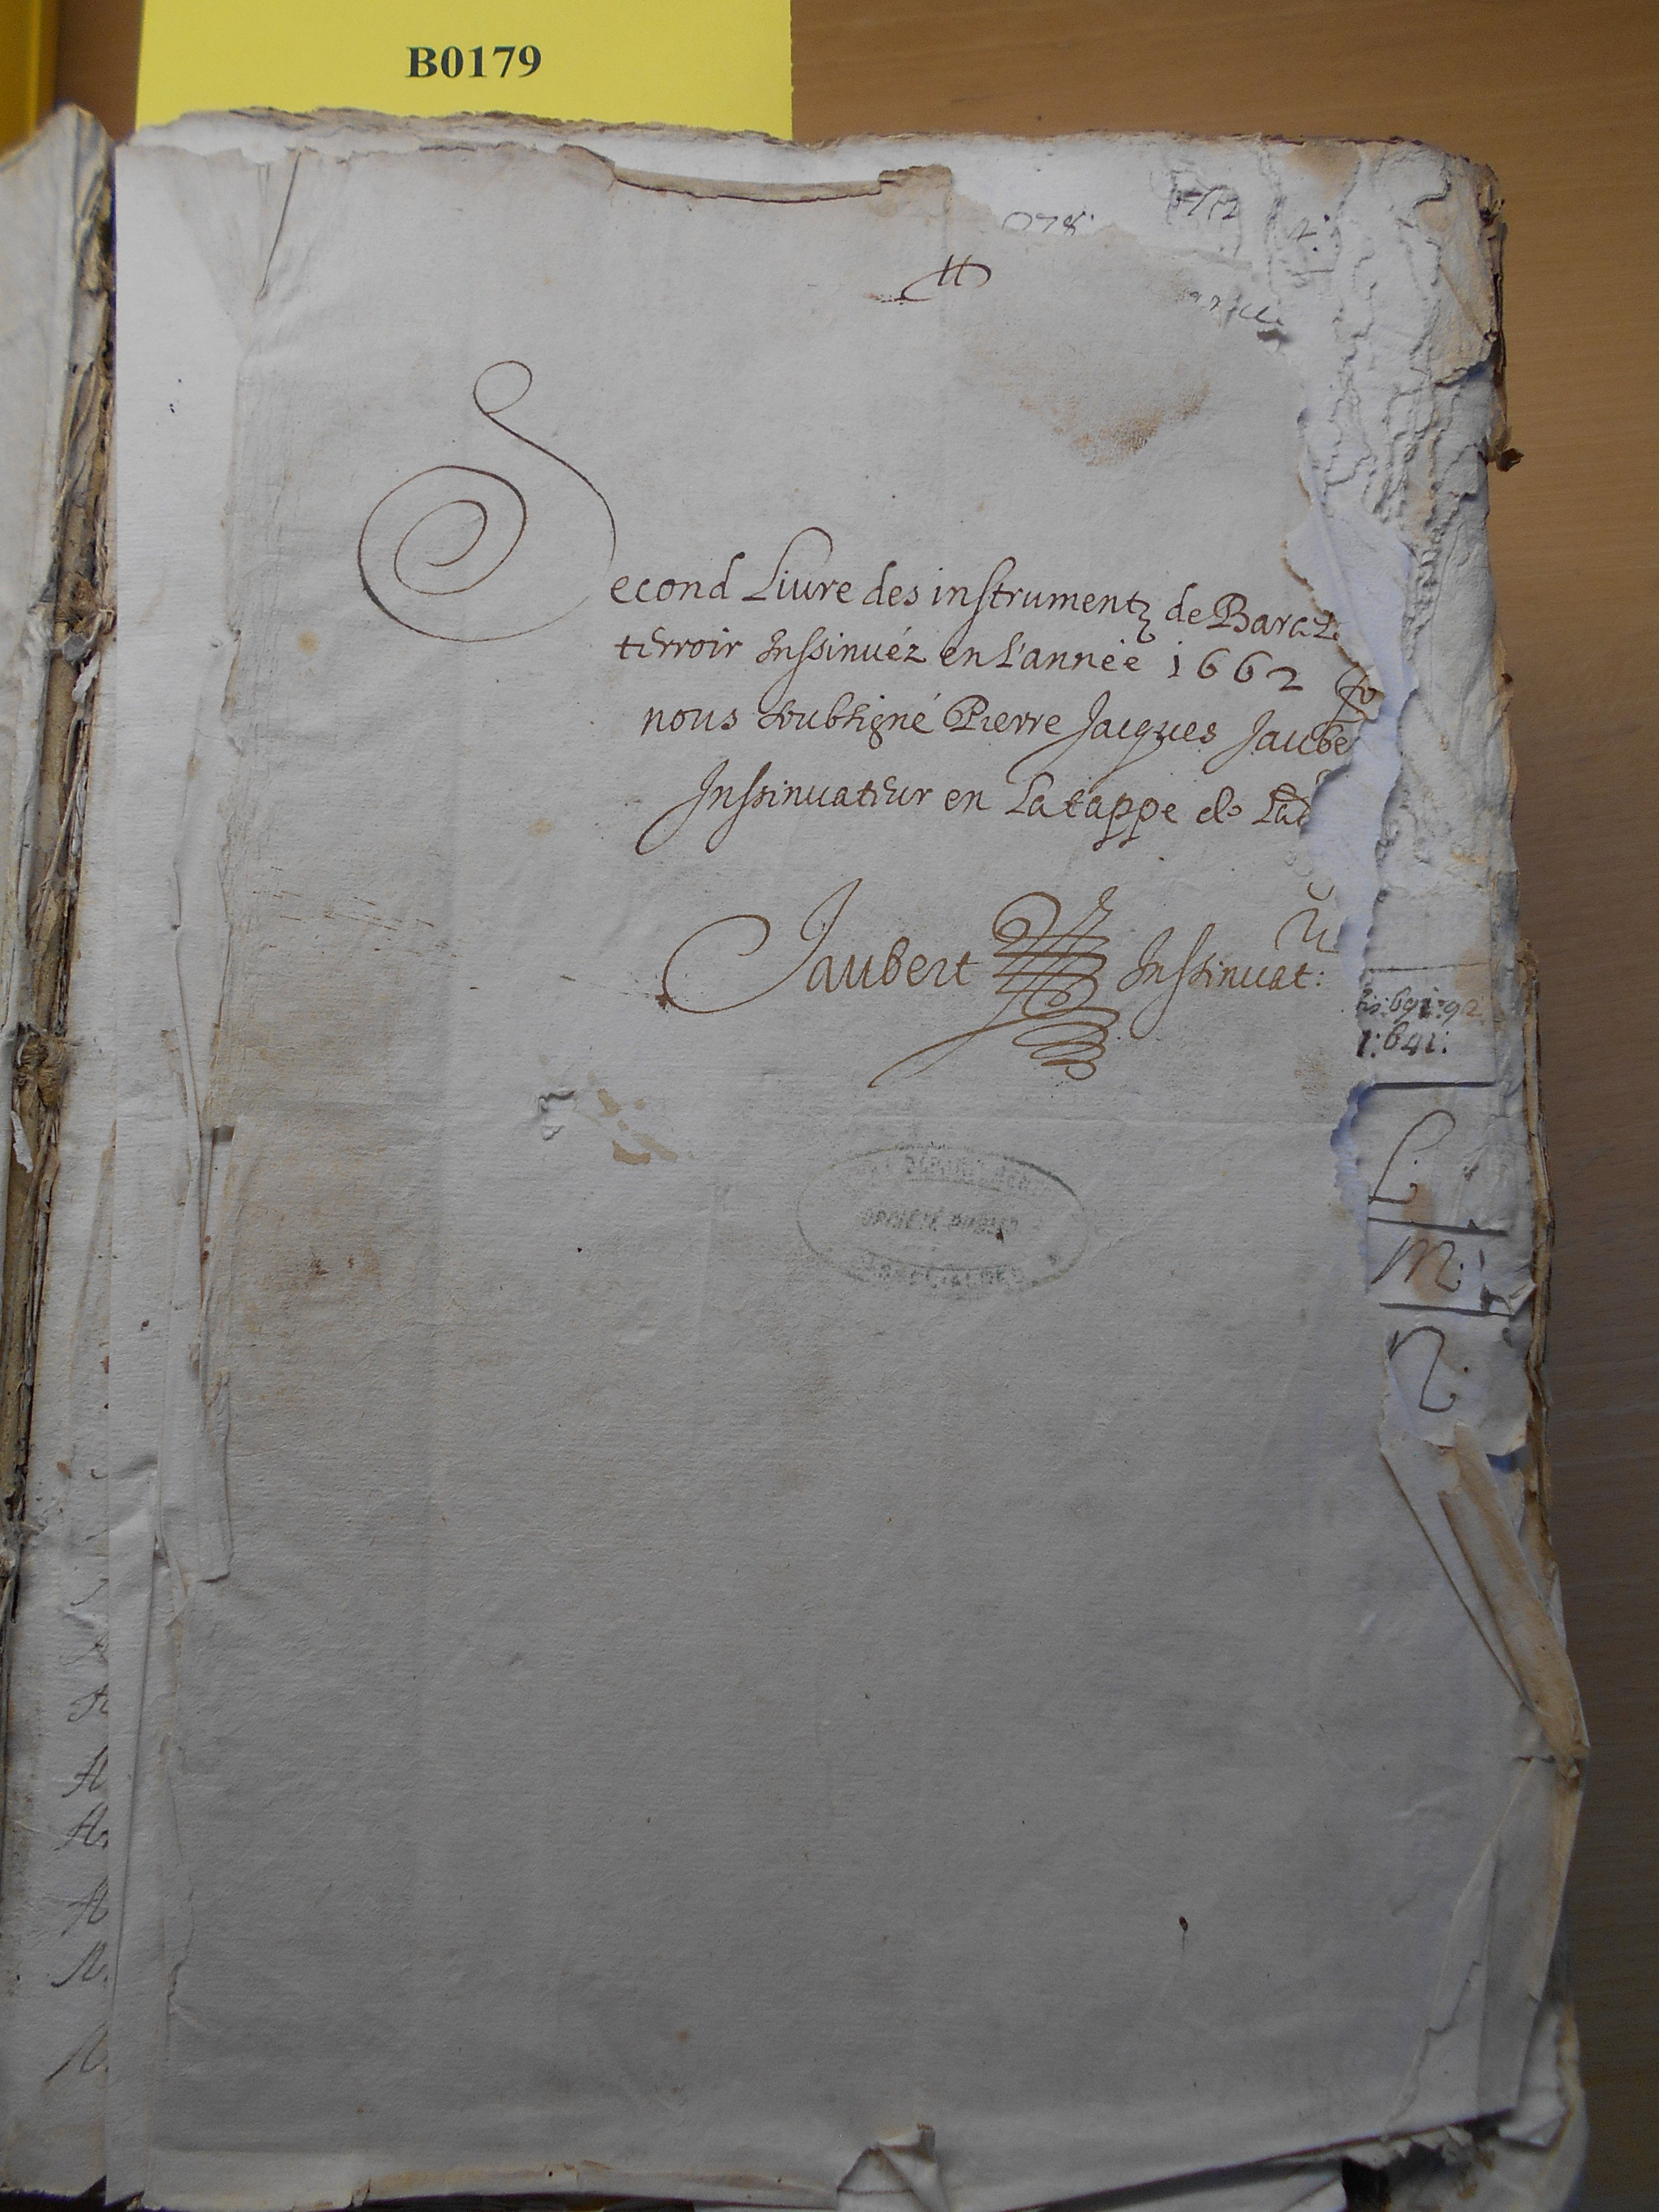 B0179
Second Liure des instrumentz de Barc
terroir Inssinuéz en l'année 1662
nous Soubsigné Pierre Jacques Jaube
Inssinuateur en La tappe de Lad
Jaubert Inssinuat:
1:641:
L:
M:
N: